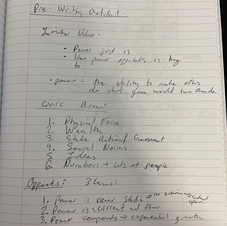 Pre-Writing Activity:
Video:
• Power just is
• How power operates is key
to
• power = the ability to make others
do what you would have them do.
Civic Arena:
1. Physical Force
2. Wealth
3. State Action / Government
4. Social Norms
5. Ideas
6. Numbers → lots of people
3 laws:
1. Power is never static →
2. Power is current and flow
3. Power compounds → exponential growth